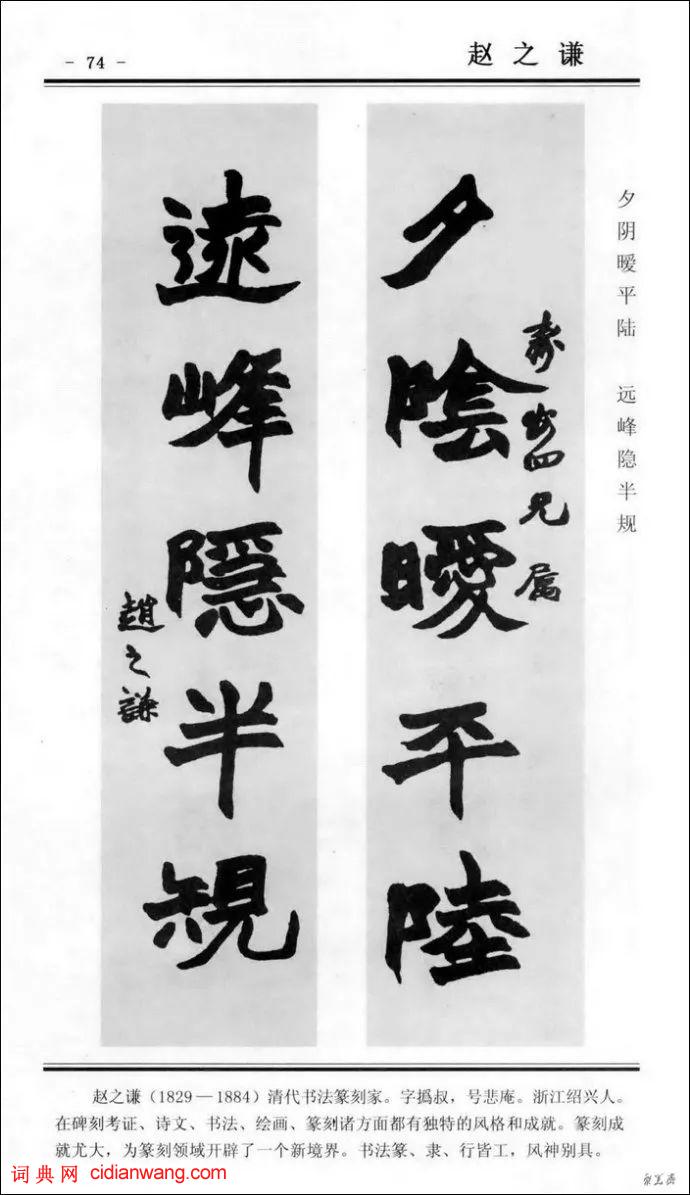 - 74 -
赵之谦
夕阴暧平陆 远峰隐半规
夕陰曖平陸
四兄属
遠峰隱半規
趙之謙
赵之谦(1829—1884)清代书法篆刻家。字撝叔,号悲庵。浙江绍兴人。
在碑刻考证、诗文、书法、绘画、篆刻诸方面都有独特的风格和成就。篆刻成
就尤大,为篆刻领域开辟了一个新境界。书法篆、隶、行皆工,风神别具。
词典网 cidianwang.com